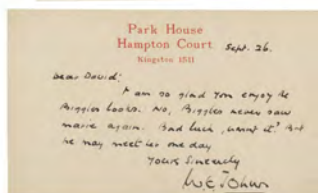 Park House
Hampton Court
Kingston 1511
Sept. 26.
Dear David;
I am so glad you enjoy the
Biggles books. No, Biggles never saw
Marie again. Bad luck, wasn't it? But
he may meet her one day
Yours Sincerely
W.E. Johns